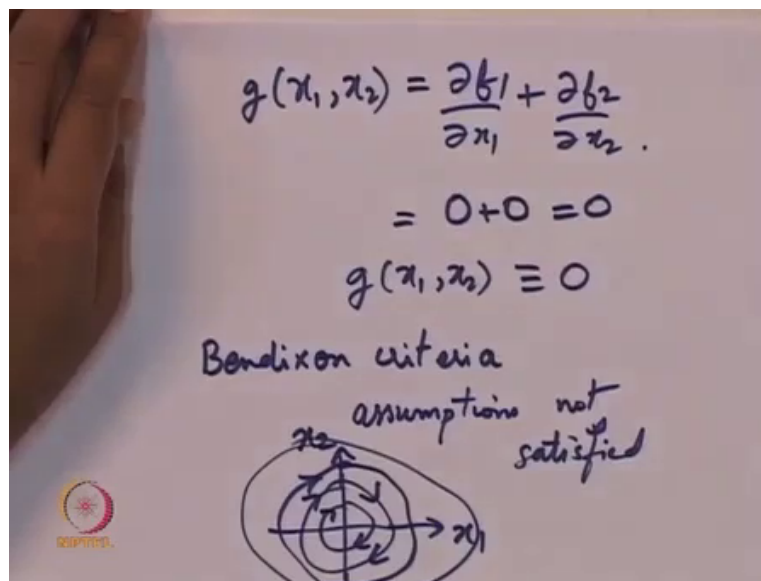 g(x₁, x₂) = ∂f1/∂x₁ + ∂f2/∂x₂ .
= 0+0 = 0
g(x₁, x₂) ≡ 0
Bendixon criteria
assumptions not
satisfied
x₂
x₁
NPTEL